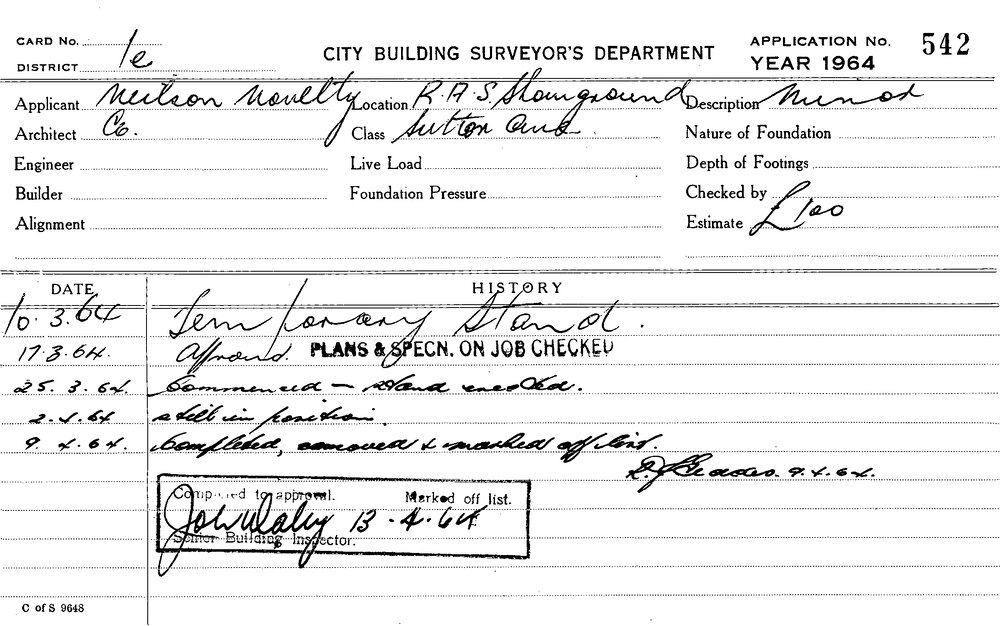 CARD No. CITY BUILDING SURVEYOR'S DEPARTMENT APPLICATION No. 542
DISTRICT 1e YEAR 1964
Applicant Neilson Novelty Location R.A.S. Showground Description Minor
Architect Co. Class Sutton Nature of Foundation
Engineer Live Load Depth of Footings
Builder Foundation Pressure Checked by
Alignment Estimate £100
DATE HISTORY
10.3.64 Temporary Stand.
17.3.64. Approved. PLANS & SPECN. ON JOB CHECKED
25.3.64. Commenced – stand erected.
2.4.64 still in position.
9.4.64. Completed, removed & marked off list.
9.4.64.
Completed to approval. Marked off list.
13.4.64
Senior Building Inspector.
C of S 9648